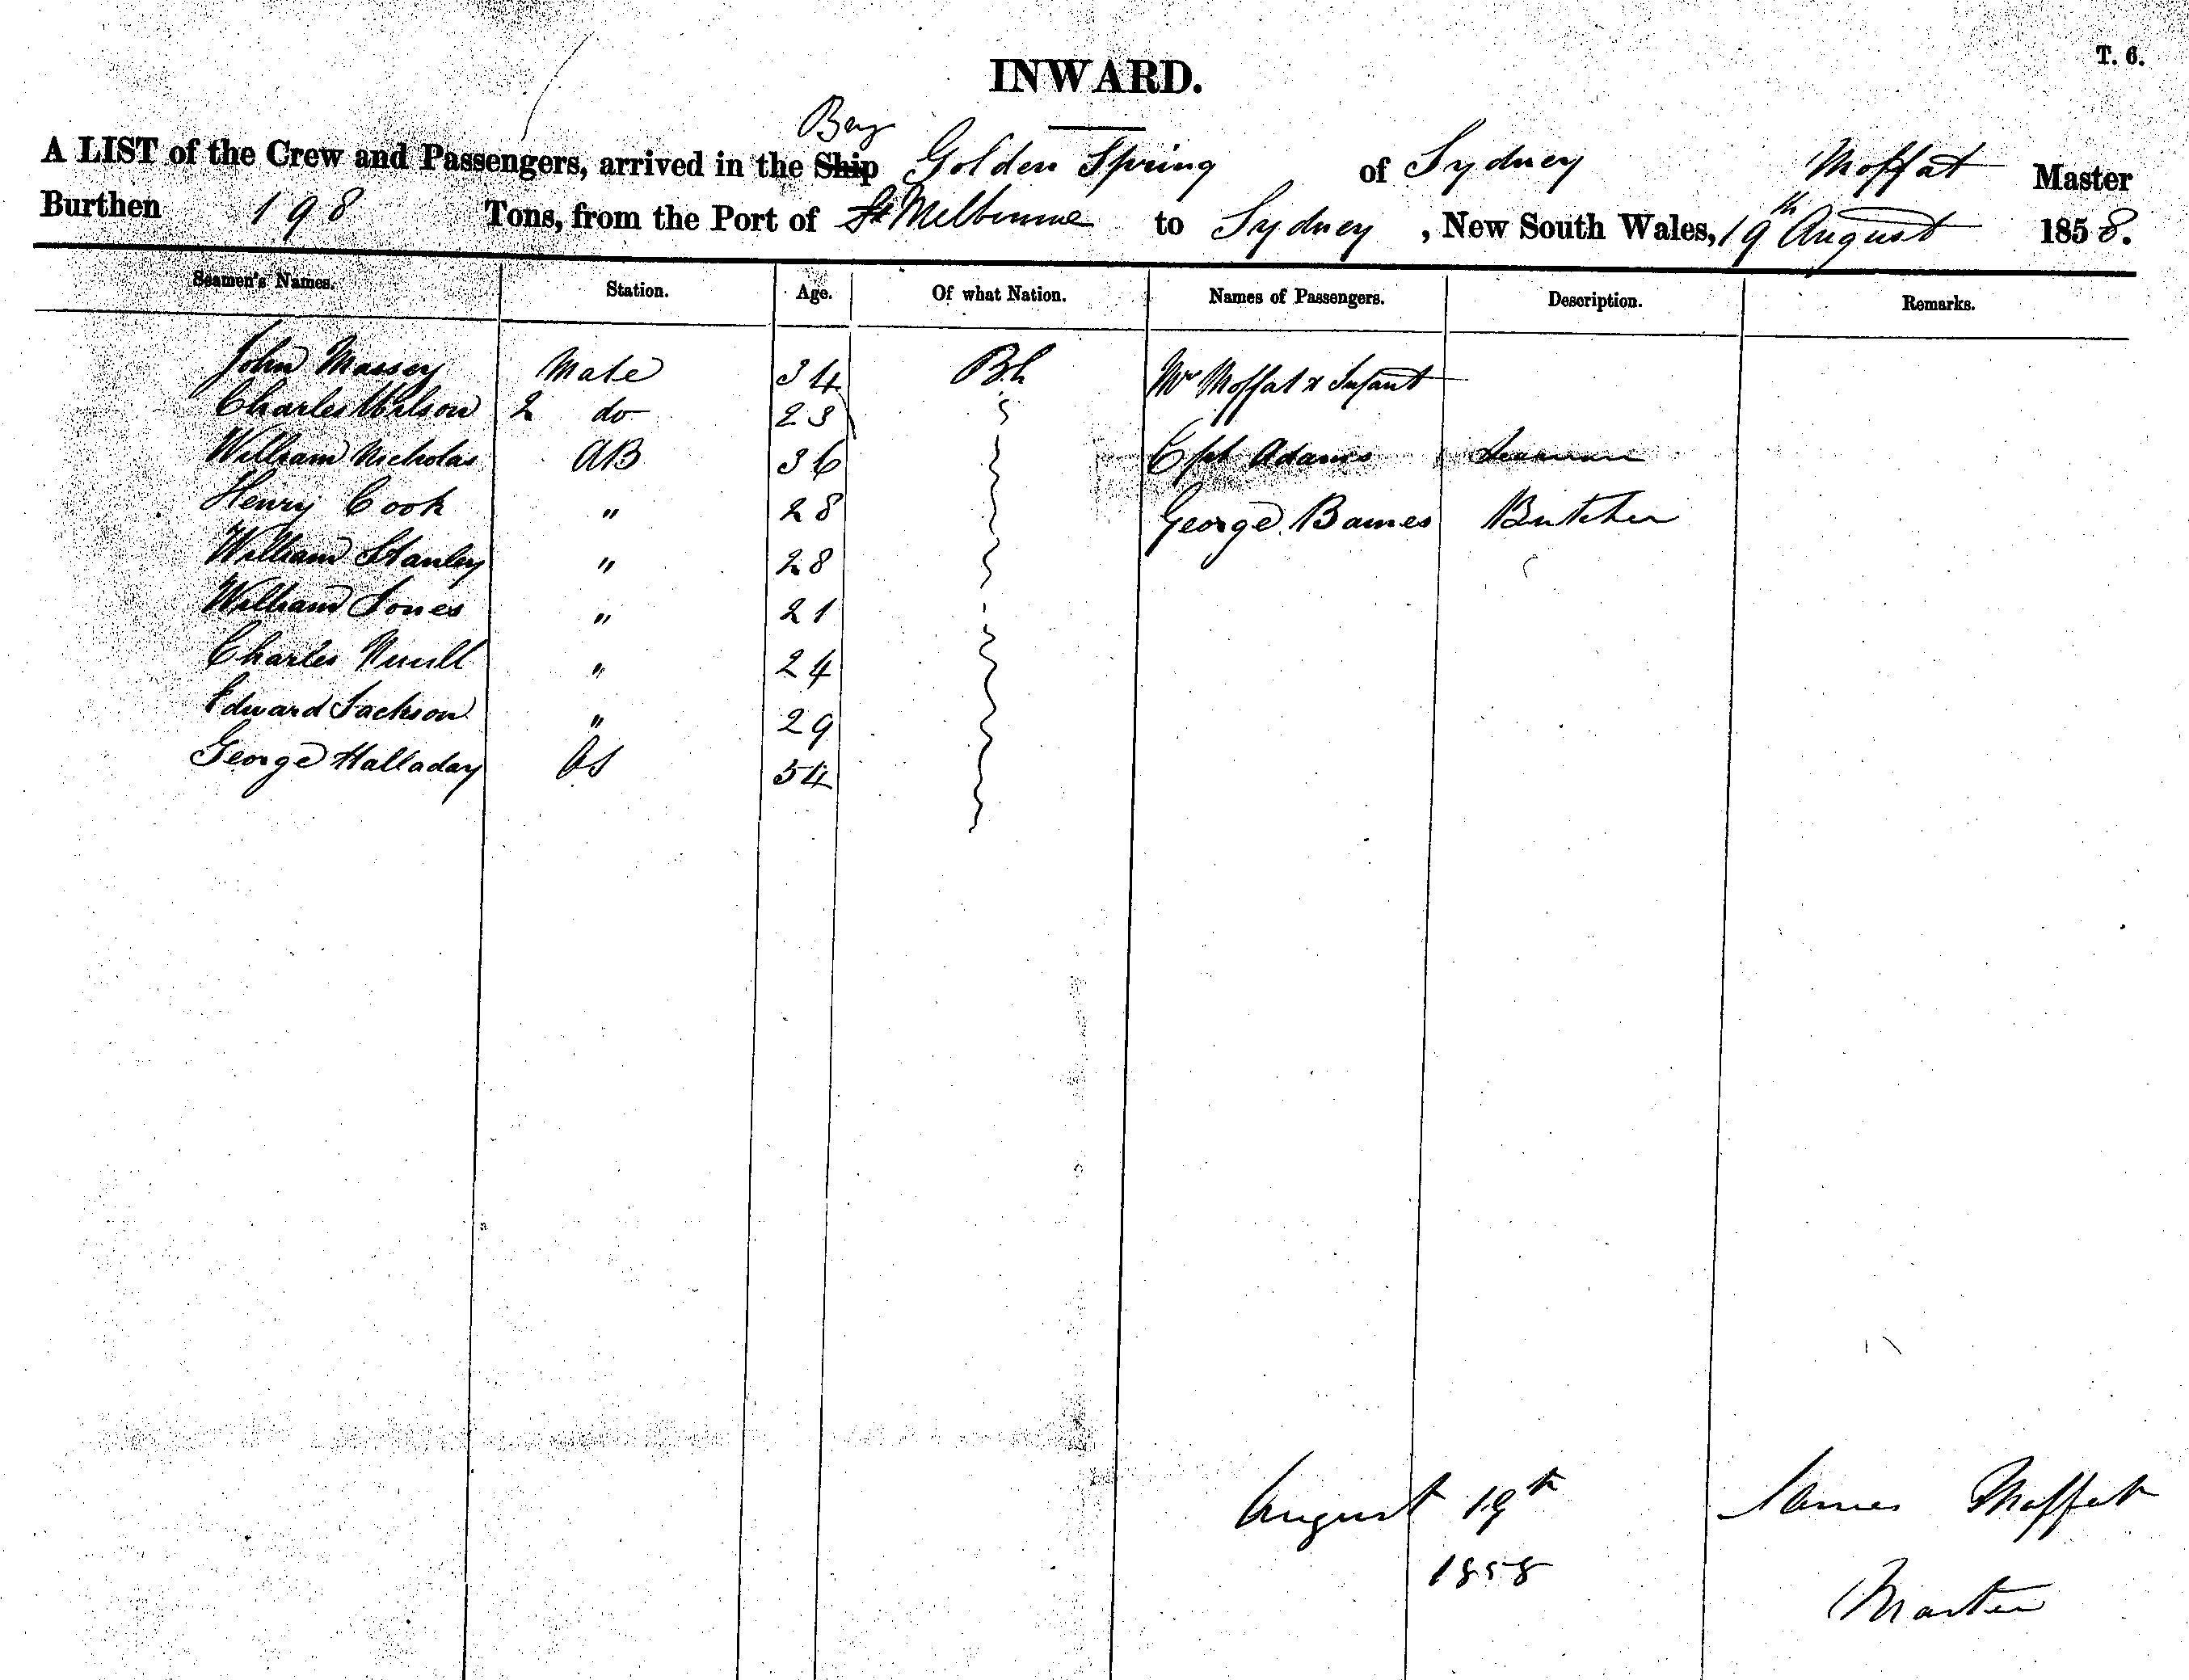 T. 6.
INWARD.
A LIST of the Crew and Passengers, arrived in the Ship Golden Spring of Sydney Moffat Master
Burthen 198 Tons, from the Port of Melbourne to Sydney, New South Wales, 19th August 1858.
Seamen's Names. Station. Age. Of what Nation. Names of Passengers. Description. Remarks.
John Massey Mate 34 Bh Moffat & Infant
Charles Wilson 2 do 23
William Nicholas AB 36 Cpt Adams
Henry Cook " 28 George Barnes Butcher
William Stanley " 28
William Jones " 21
Charles " 24
Edward Jackson " 29
George Halladay OS 54
August 19th James Moffat
1858
Master